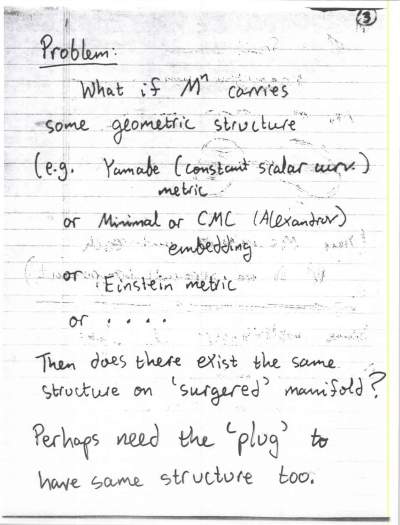 3
Problem:
What if Mⁿ carries
some geometric structure
(e.g. Yamabe (constant scalar curv.)
metric
or Minimal or CMC (Alexandrov)
embedding
or Einstein metric
or . . . .
Then does there exist the same
structure on 'surgered' manifold?
Perhaps need the 'plug' to
have same structure too.